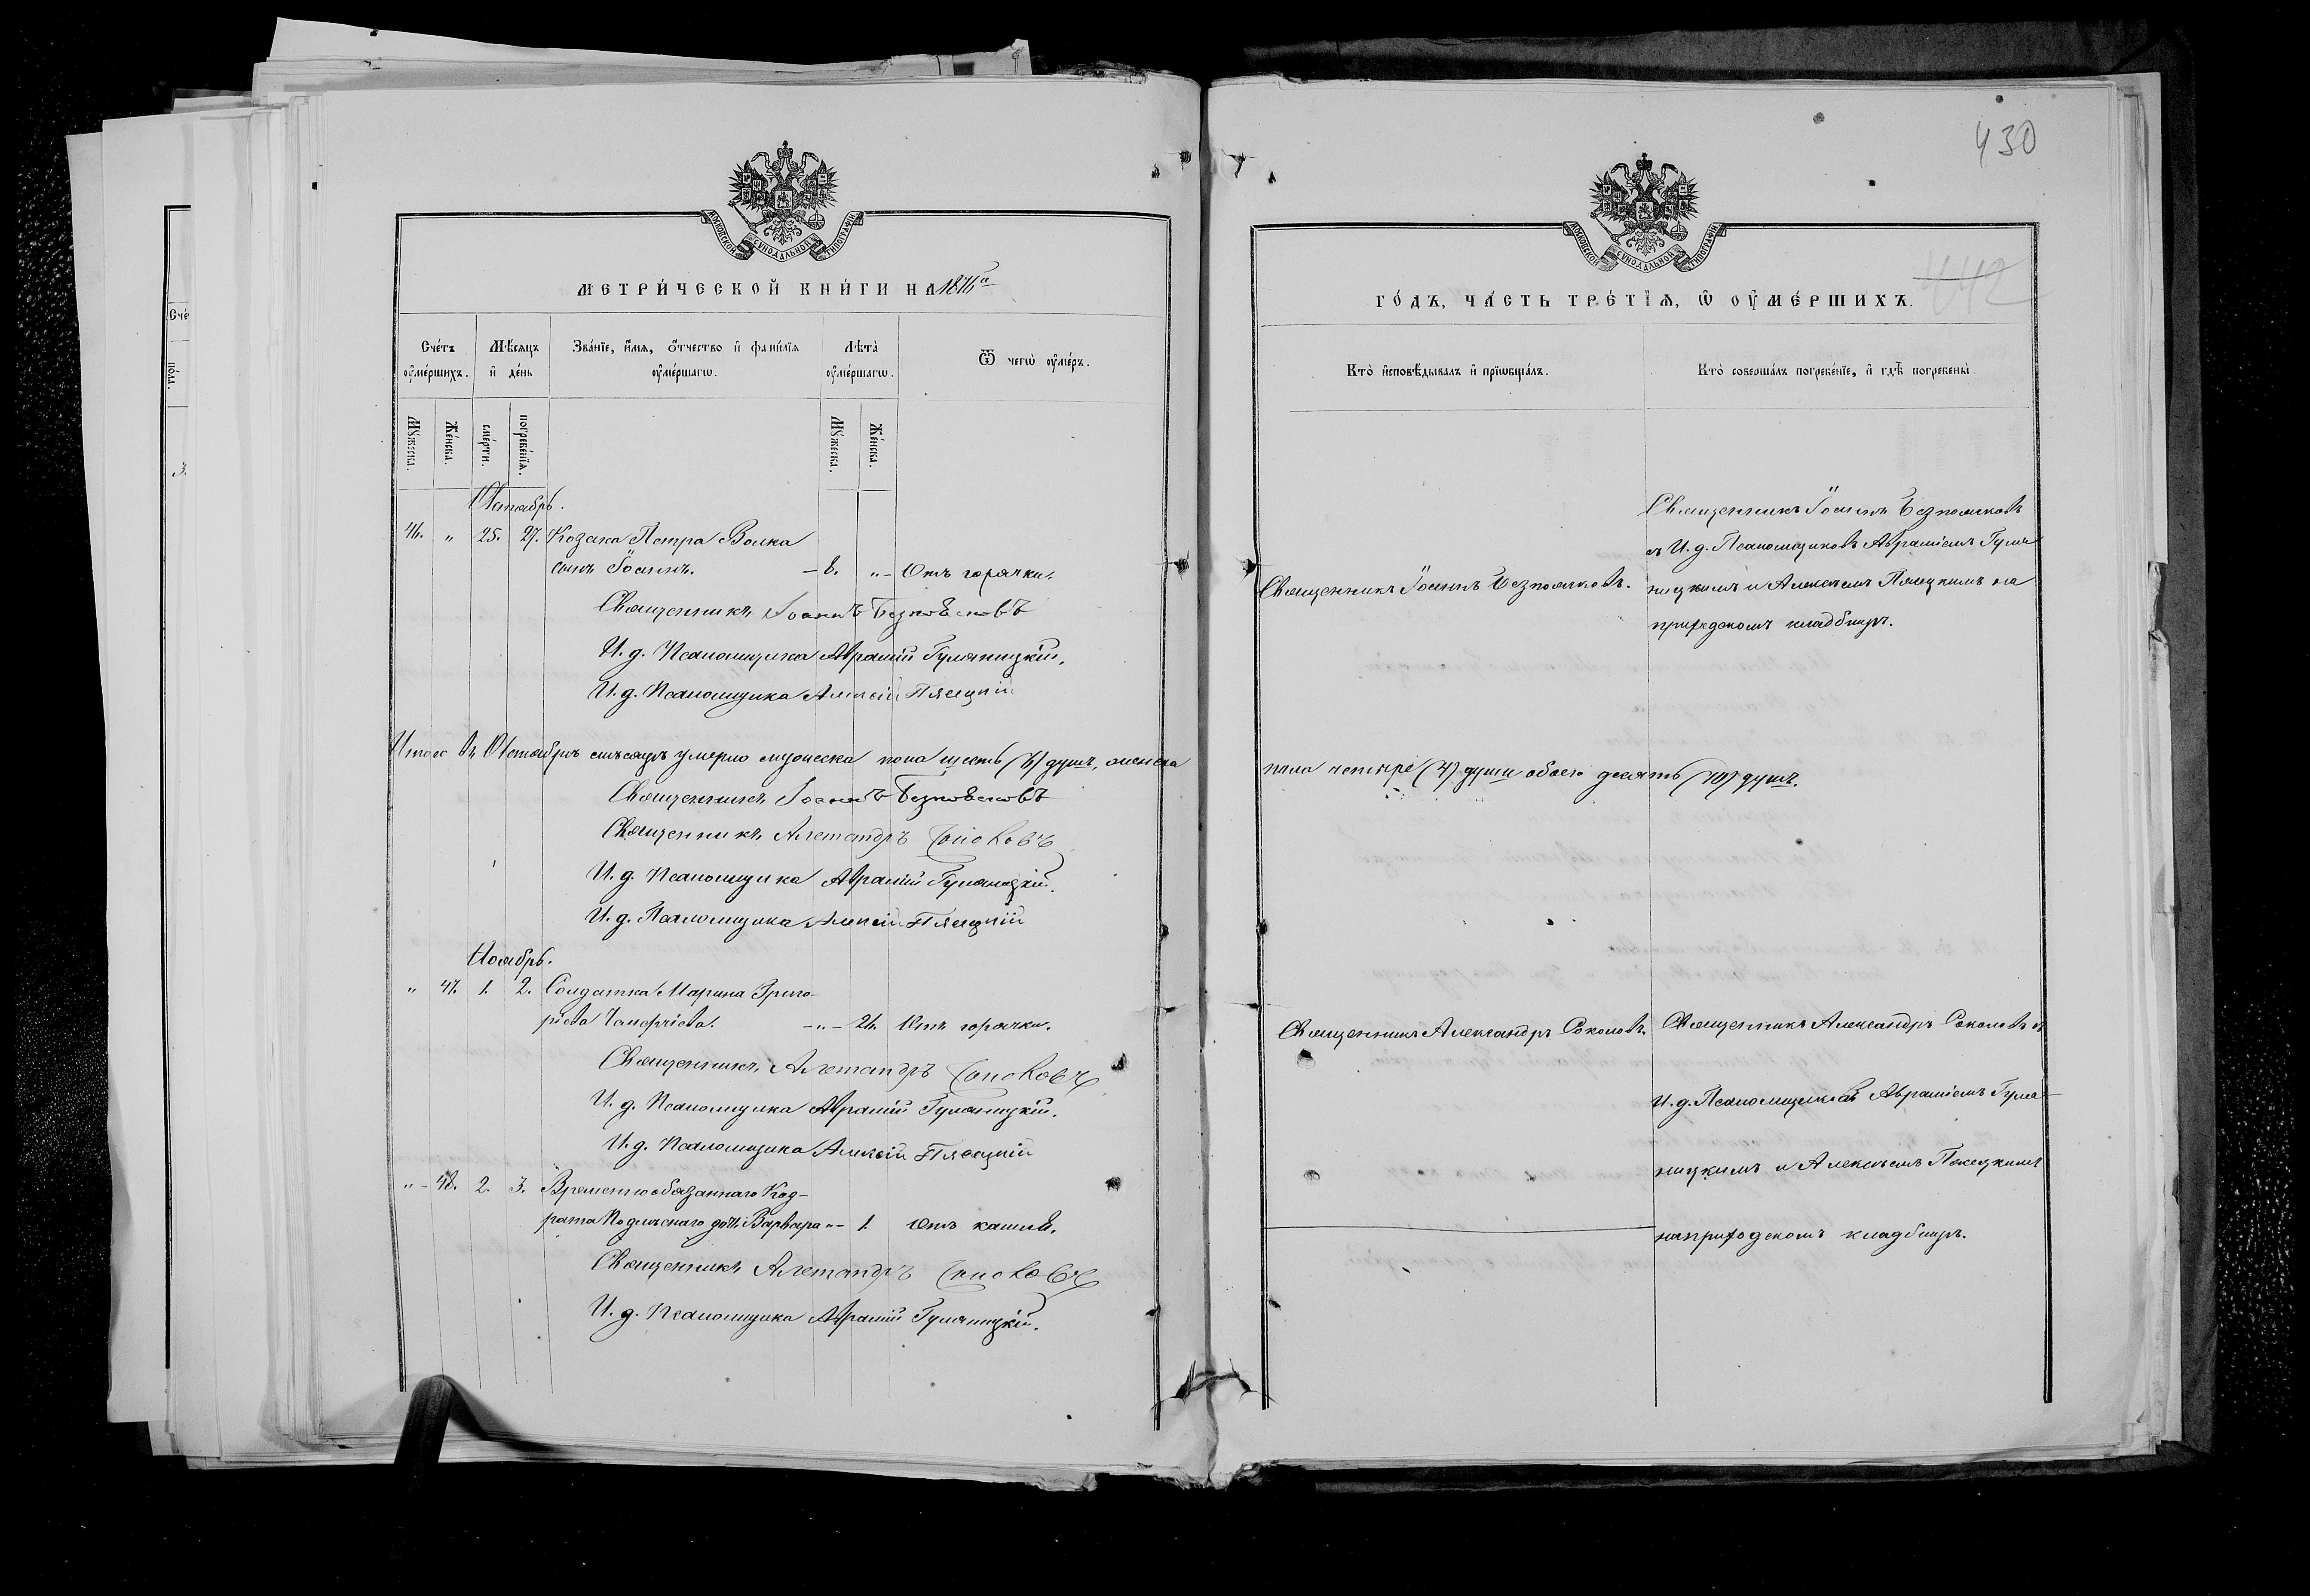 МОСКОВСКОЙ СѴНОДАЛЬНОЙ ТИПОГРАФІИ
МЕТРИ́ЧЕСКОЙ КНИ́ГИ НА
Сче́тъ ѹ҆ме́ршихъ.
Мѣ́сяцъ и҆ де́нь
Зва́нїе, и҆́мѧ, ѻ҆́тчество и҆ фамилїѧ ѹ҆ме́ршагѡ.
Лѣта̀ ѹ҆ме́ршагѡ.
Ѿ чегѡ̀ ѹ҆ме́ръ.
Мꙋ́жеска.
Же́нска.
сме́рти.
погребе́нїѧ.
Мꙋ́жеска.
Же́нска.
Октябрь.
46. „ 25. 27. Козака Петра Волка
сынъ Іоаннъ. — 8. „ — Отъ горячки.
Священникъ Іоаннъ
И. д. Псаломщика Аврамій Гуляницкій.
И. д. Псаломщика Алексій Пясецкій
Итого въ Октябрѣ мѣсяцѣ умерло мужеска пола шесть (6) душъ, женска
Священникъ Іоаннъ
Священникъ Александръ Соколовъ
И. д. Псаломщика Аврамій Гуляницкій.
И. д. Псаломщика Алексій Пясецкій
Ноябрь.
„ 47. 1. 2. Солдатка Марина Григо-
ріева — „ — 26. Отъ горячки.
Священникъ Александръ Соколовъ
И. д. Псаломщика Аврамій Гуляницкій.
И. д. Псаломщика Алексій Пясецкій
„ — 48. 2. 3. Временнообязаннаго Код-
рата дочь Варвара „ — 1. Отъ кашля.
Священникъ Александръ Соколовъ
И. д. Псаломщика Аврамій Гуляницкій.
430
442
МОСКОВСКОЙ СѴНОДАЛЬНОЙ ТИПОГРАФІИ
ГО́ДЪ, ЧА́СТЬ ТРЕ́ТЇѦ, Ѡ҆ ОУ҆МЕ́РШИХЪ.
Кто̀ и҆сповѣ́дывалъ и҆ прїѡбща́лъ.
Кто̀ соверша́лъ погребе́нїе, и҆ гдѣ̀ погребены̀.
Священникъ Іоаннъ
Священникъ Іоаннъ
съ И. д. Псаломщиковъ Авраміемъ Гуля-
ницкимъ и Алексѣемъ Пясецкимъ на
приходскомъ кладбищѣ.
пола четыре (4) души обоего десять (10) душъ.
Священникъ Александръ Соколовъ.
Священникъ Александръ Соколовъ съ
И. д. Псаломщиковъ Авраміемъ Гуля-
ницкимъ и Алексѣемъ Пясецкимъ
на приходскомъ кладбищѣ.